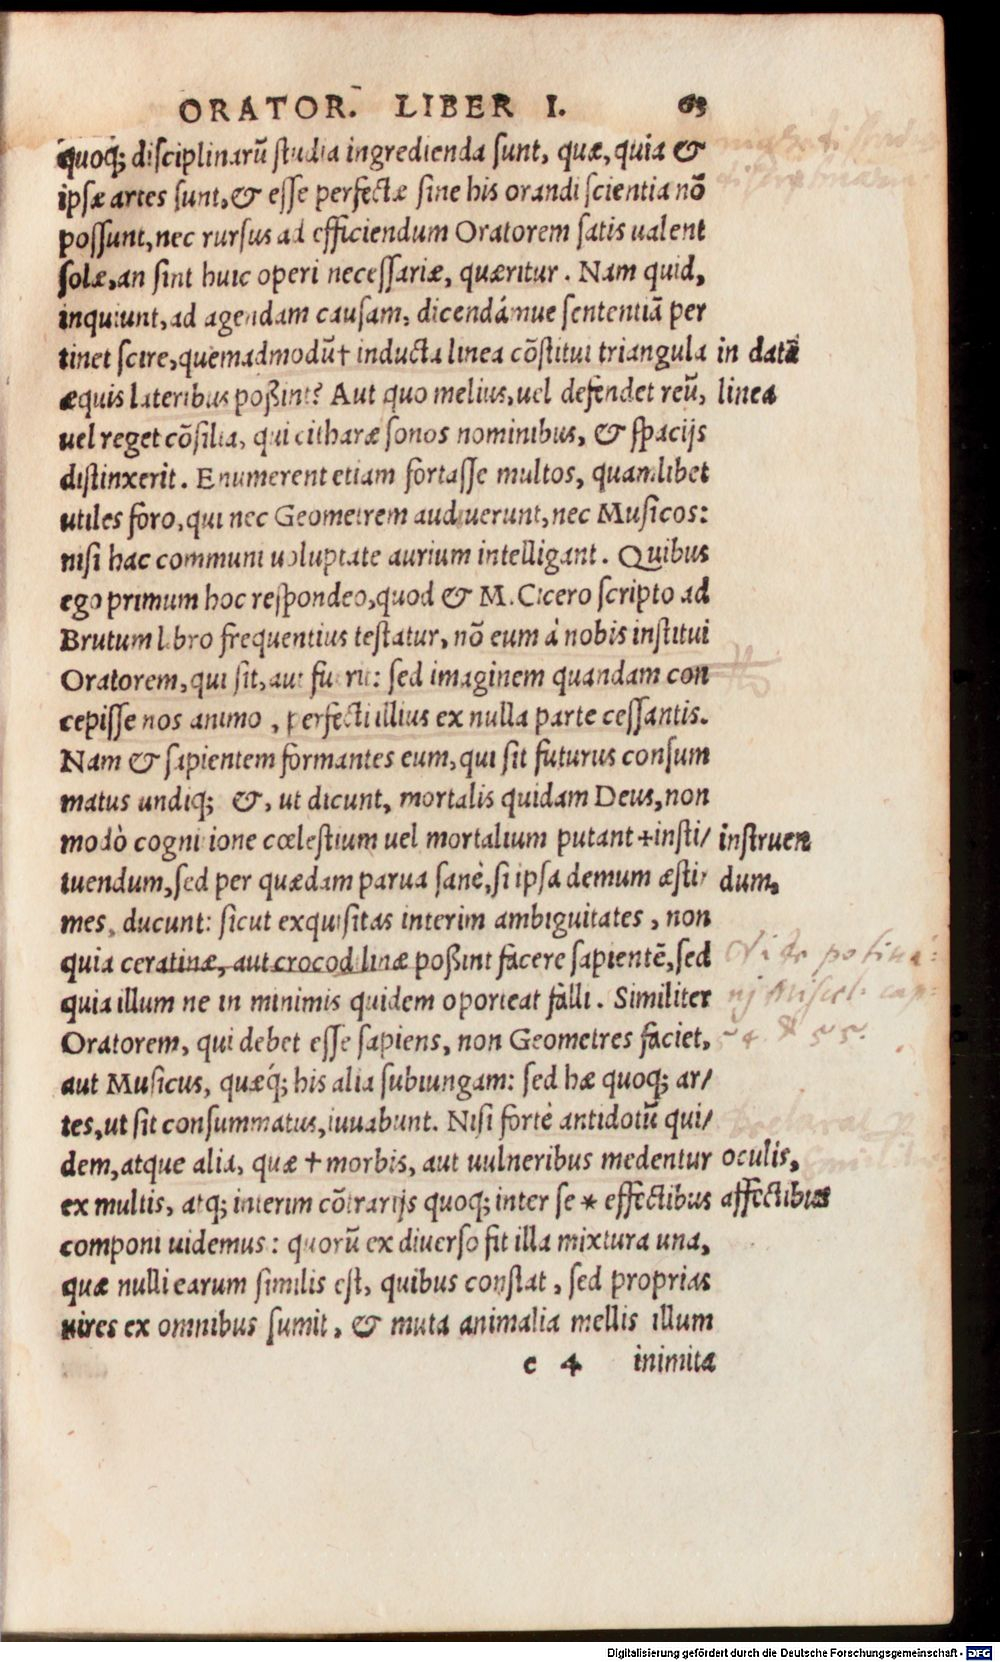 ORATOR. LIBER I. 63
quoq; disciplinarū studia ingredienda sunt, quæ, quia &
ipsæ artes sunt, & esse perfectæ sine his orandi scientia nō
possunt, nec rursus ad efficiendum Oratorem satis ualent
solæ, an sint huic operi necessariæ, quæritur. Nam quid,
inquiunt, ad agendam causam, dicendámue sententiā per
tinet scire, quemadmodū † inducta linea cōstitui triangula in datā
æquis lateribus poßint? Aut quo melius, uel defendet reū, linea
uel reget cōsilia, qui citharæ sonos nominibus, & spacijs
distinxerit. Enumerent etiam fortasse multos, quamlibet
utiles foro, qui nec Geometrem audiuerunt, nec Musicos:
nisi hac communi uoluptate aurium intelligant. Quibus
ego primum hoc respondeo, quod & M. Cicero scripto ad
Brutum libro frequentius testatur, nō eum à nobis institui
Oratorem, qui sit, aut fuerit: sed imaginem quandam con
cepisse nos animo, perfecti illius ex nulla parte cessantis.
Nam & sapientem formantes eum, qui sit futurus consum
matus undiq; &, ut dicunt, mortalis quidam Deus, non
modò cognitione cœlestium uel mortalium putant + insti/ instruen
tuendum, sed per quædam parua sanè, si ipsa demum æsti/ dum,
mes, ducunt: sicut exquisitas interim ambiguitates, non
quia ceratinæ, aut crocodilinæ poßint facere sapientē, sed
quia illum ne in minimis quidem oporteat falli. Similiter
Oratorem, qui debet esse sapiens, non Geometres faciet,
aut Musicus, quæq́; his alia subiungam: sed hæ quoq; ar/
tes, ut sit consummatus, iuuabunt. Nisi fortè antidotū qui/
dem, atque alia, quæ † morbis, aut uulneribus medentur oculis,
ex multis, atq; interim cōtrarijs quoq; inter se * effectibus affectibus
componi uidemus: quorū ex diuerso fit illa mixtura una,
quæ nulli earum similis est, quibus constat, sed proprias
uires ex omnibus sumit, & muta animalia mellis illum
e 4 inimita
cap:
54 & 55.
Digitalisierung gefördert durch die Deutsche Forschungsgemeinschaft - DFG